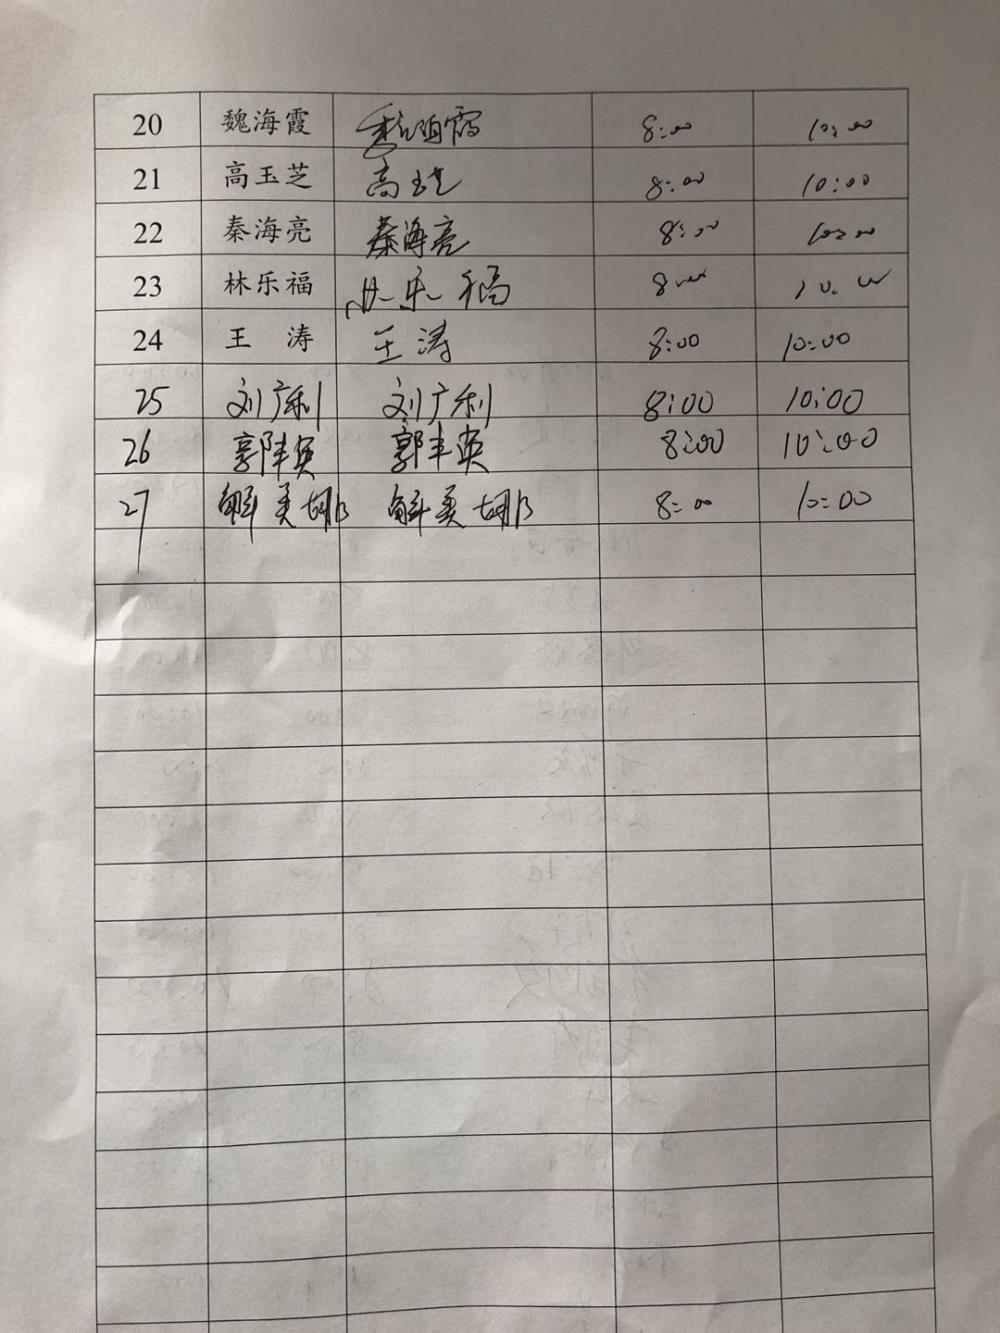 20 魏海霞 魏海霞 8:00 10:00
21 高玉芝 高玉芝 8:00 10:00
22 秦海亮 秦海亮 8:00 10:00
23 林乐福 林乐福 8:00 10:00
24 王 涛 王涛 8:00 10:00
25 刘广利 刘广利 8:00 10:00
26 郭丰英 郭丰英 8:00 10:00
27 解美娜 解美娜 8:00 10:00